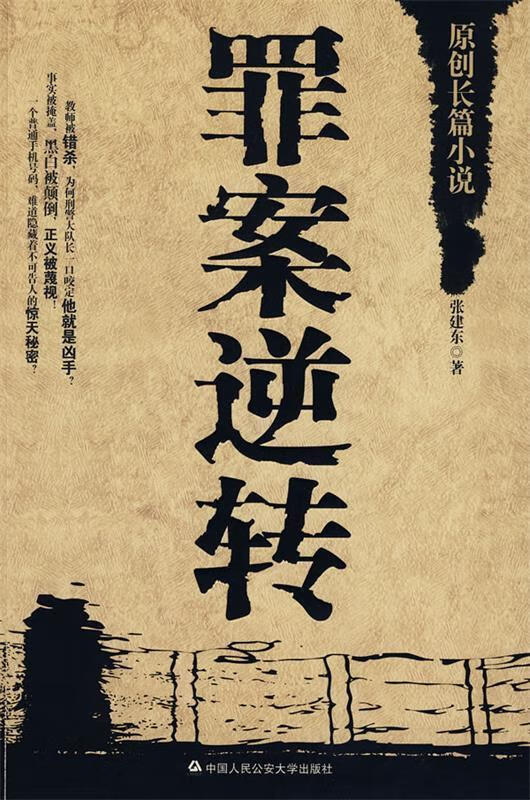 原创长篇小说
张建东◎著
罪案逆转
教师被错杀，为何刑警大队长一口咬定他就是凶手？
事实被掩盖、黑白被颠倒，正义被蔑视！
一个普通手机号码，难道隐藏着不可告人的惊天秘密？
中国人民公安大学出版社